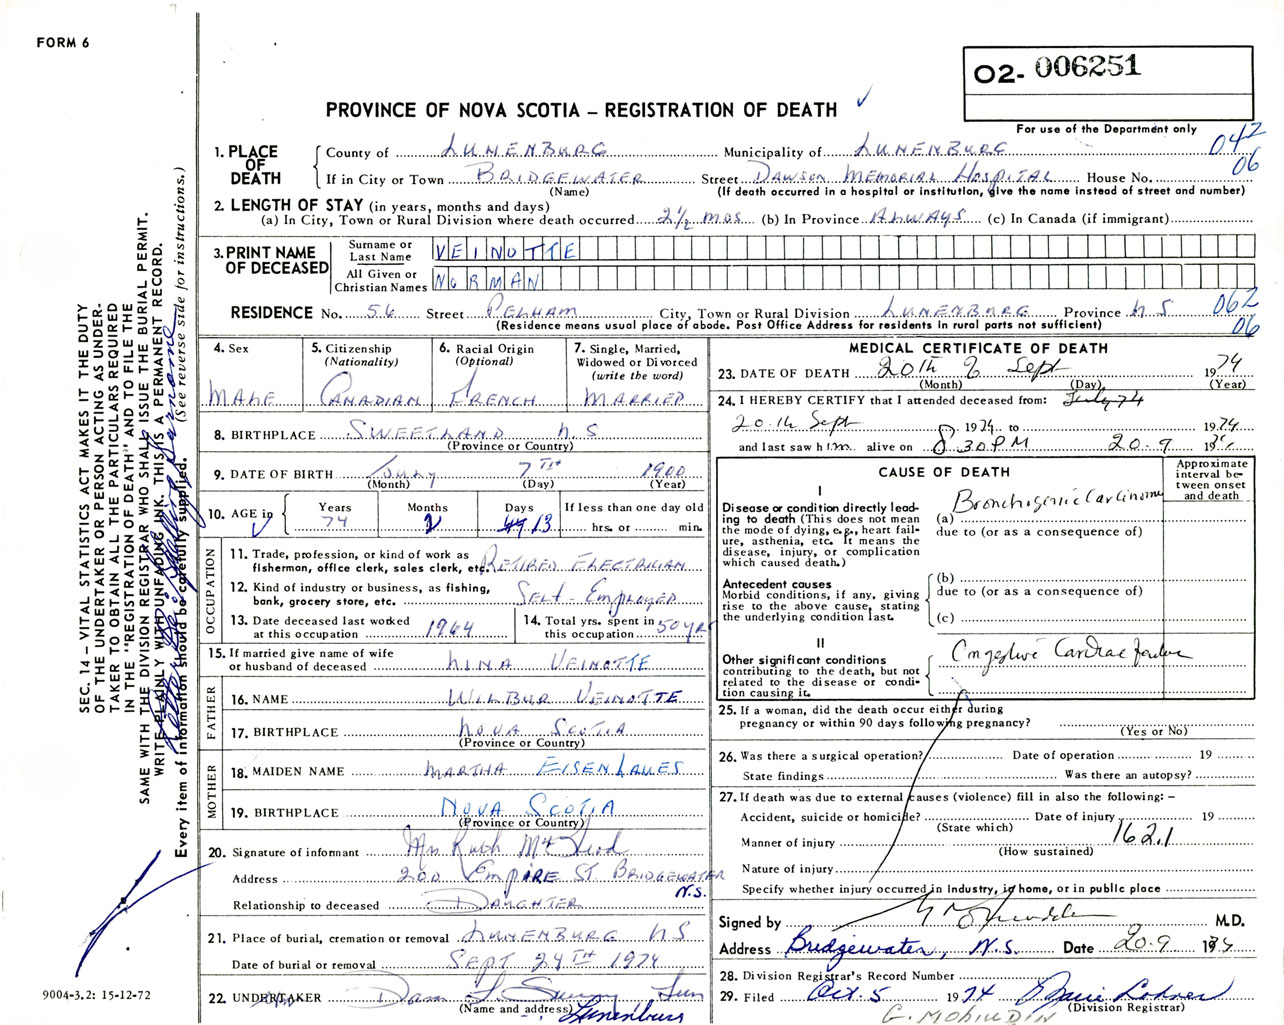 FORM 6
O2- 006251
PROVINCE OF NOVA SCOTIA – REGISTRATION OF DEATH ✓
For use of the Department only
042
06
1. PLACE OF DEATH
County of LUNENBURG Municipality of LUNENBURG
If in City or Town BRIDGEWATER Street DAWSON MEMORIAL HOSPITAL House No.
(Name) (If death occurred in a hospital or institution, give the name instead of street and number)
2. LENGTH OF STAY (in years, months and days)
(a) In City, Town or Rural Division where death occurred 2½ mos (b) In Province ALWAYS (c) In Canada (if immigrant)
3. PRINT NAME OF DECEASED
Surname or Last Name VEINOTTE
All Given or Christian Names NORMAN
RESIDENCE No. 56 Street PELHAM City, Town or Rural Division LUNENBURG Province N S
062
06
(Residence means usual place of abode. Post Office Address for residents in rural parts not sufficient)
4. Sex
MALE
5. Citizenship (Nationality)
CANADIAN
6. Racial Origin (Optional)
FRENCH
7. Single, Married, Widowed or Divorced (write the word)
MARRIED
8. BIRTHPLACE SWEETLAND N.S
(Province or Country)
9. DATE OF BIRTH July 7TH 1900
(Month) (Day) (Year)
10. AGE in ✓
Years Months Days If less than one day old
74 2 13 hrs. or min.
OCCUPATION
11. Trade, profession, or kind of work as fisherman, office clerk, sales clerk, etc. RETIRED ELECTRICIAN
12. Kind of industry or business, as fishing, bank, grocery store, etc. SELF-EMPLOYED
13. Date deceased last worked at this occupation 1964
14. Total yrs. spent in this occupation 50 yrs
15. If married give name of wife or husband of deceased NINA VEINOTTE
FATHER
16. NAME WILBUR VEINOTTE
17. BIRTHPLACE NOVA SCOTIA
(Province or Country)
MOTHER
18. MAIDEN NAME MARTHA EISENHAUES
19. BIRTHPLACE NOVA SCOTIA
(Province or Country)
20. Signature of informant Mrs Ruth McLeod
Address 200 EMPIRE ST BRIDGEWATER N.S.
Relationship to deceased DAUGHTER
21. Place of burial, cremation or removal LUNENBURG N S
Date of burial or removal SEPT 24TH 1974
22. UNDERTAKER
(Name and address) Lunenburg
MEDICAL CERTIFICATE OF DEATH
23. DATE OF DEATH 20th of Sept 1974
(Month) (Day) (Year)
24. I HEREBY CERTIFY that I attended deceased from: July 74
20th Sept 1974 to 1974
and last saw him alive on 8 30 PM 20.9 1974
CAUSE OF DEATH
Approximate interval between onset and death
I
Disease or condition directly leading to death (This does not mean the mode of dying, e.g., heart failure, asthenia, etc. It means the disease, injury, or complication which caused death.)
(a) Bronchogenic Carcinoma
due to (or as a consequence of)
Antecedent causes
Morbid conditions, if any, giving rise to the above cause, stating the underlying condition last.
(b)
due to (or as a consequence of)
(c)
II
Other significant conditions contributing to the death, but not related to the disease or condition causing it.
Congestive Cardiac failure
25. If a woman, did the death occur either during pregnancy or within 90 days following pregnancy?
(Yes or No)
26. Was there a surgical operation? Date of operation 19
State findings Was there an autopsy?
27. If death was due to external causes (violence) fill in also the following: –
Accident, suicide or homicide? Date of injury 19
(State which)
162.1
Manner of injury
(How sustained)
Nature of injury
Specify whether injury occurred in Industry, in home, or in public place
Signed by M.D.
Address Bridgewater, N.S. Date 20.9 1974
28. Division Registrar's Record Number
29. Filed Oct. 5 1974
(Division Registrar)
G. MOHIUDIN
SEC. 14 – VITAL STATISTICS ACT MAKES IT THE DUTY
OF THE UNDERTAKER OR PERSON ACTING AS UNDER-
TAKER TO OBTAIN ALL THE PARTICULARS REQUIRED
IN THE "REGISTRATION OF DEATH" AND TO FILE THE
SAME WITH THE DIVISION REGISTRAR WHO SHALL ISSUE THE BURIAL PERMIT.
WRITE PLAINLY WITH UNFADING INK. THIS IS A PERMANENT RECORD.
Every item of information should be carefully supplied. (See reverse side for instructions.)
9004-3.2: 15-12-72